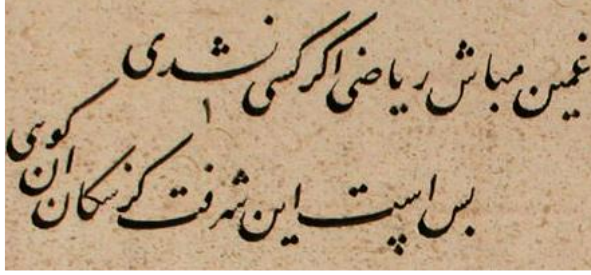 غمین مباش ریاضی اکر کسی نشدی
۱
بس است این شرفت کز سکان ان کویی